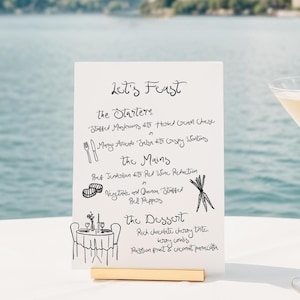 Let's Feast
the Starters
Stuffed Mushrooms with Herbed Cream Cheese
or
Mango Avocado Salsa with Crispy Wontons
the Mains
Beef Tenderloin with Red Wine Reduction
or
Vegetable and Quinoa Stuffed
Bell Peppers
the Dessert
Rich chocolate cherry torte
Passion fruit & coconut pannacotta